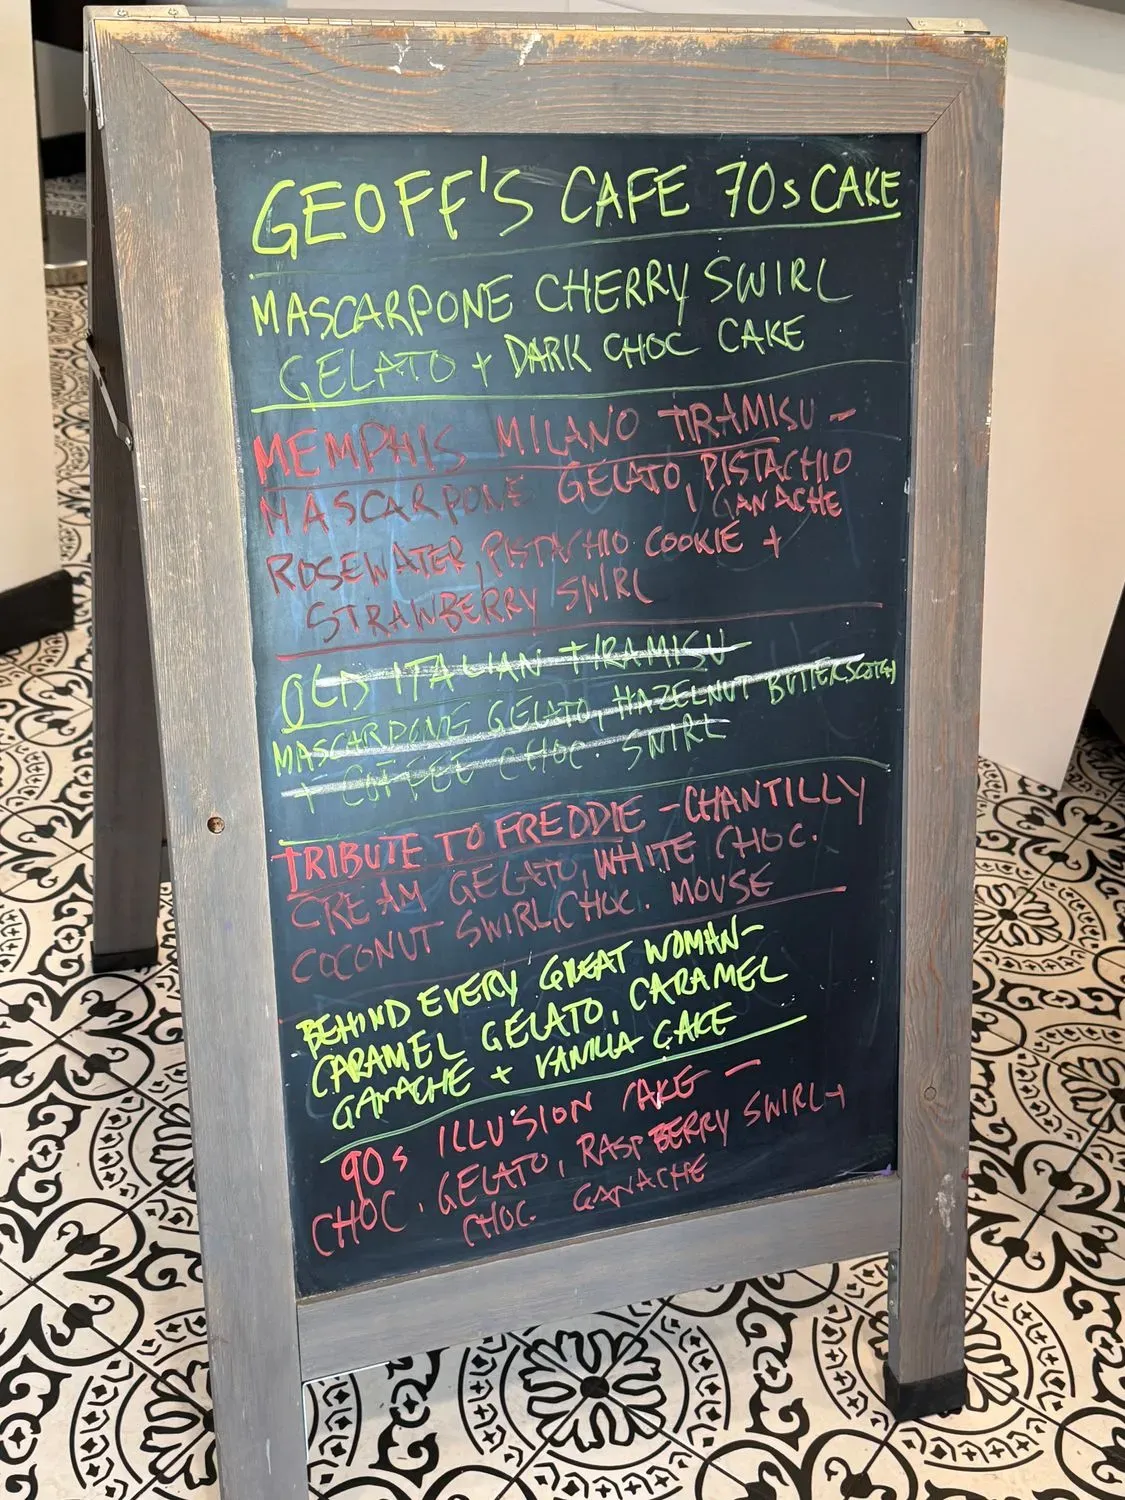 GEOFF'S CAFE 70s CAKE
MASCARPONE CHERRY SWIRL
GELATO + DARK CHOC CAKE
MEMPHIS MILANO TIRAMISU -
MASCARPONE GELATO, PISTACHIO
GANACHE
ROSEWATER, PISTACHIO COOKIE +
STRAWBERRY SWIRL
OLD ITALIAN TIRAMISU
MASCARPONE GELATO, HAZELNUT BUTTERSCOTCH
+ COFFEE CHOC. SWIRL
TRIBUTE TO FREDDIE - CHANTILLY
CREAM GELATO, WHITE CHOC.
COCONUT SWIRL, CHOC. MOUSE
BEHIND EVERY GREAT WOMAN-
CARAMEL GELATO, CARAMEL
GANACHE + VANILLA CAKE
90s ILLUSION CAKE -
CHOC. GELATO, RASPBERRY SWIRL +
CHOC. GANACHE